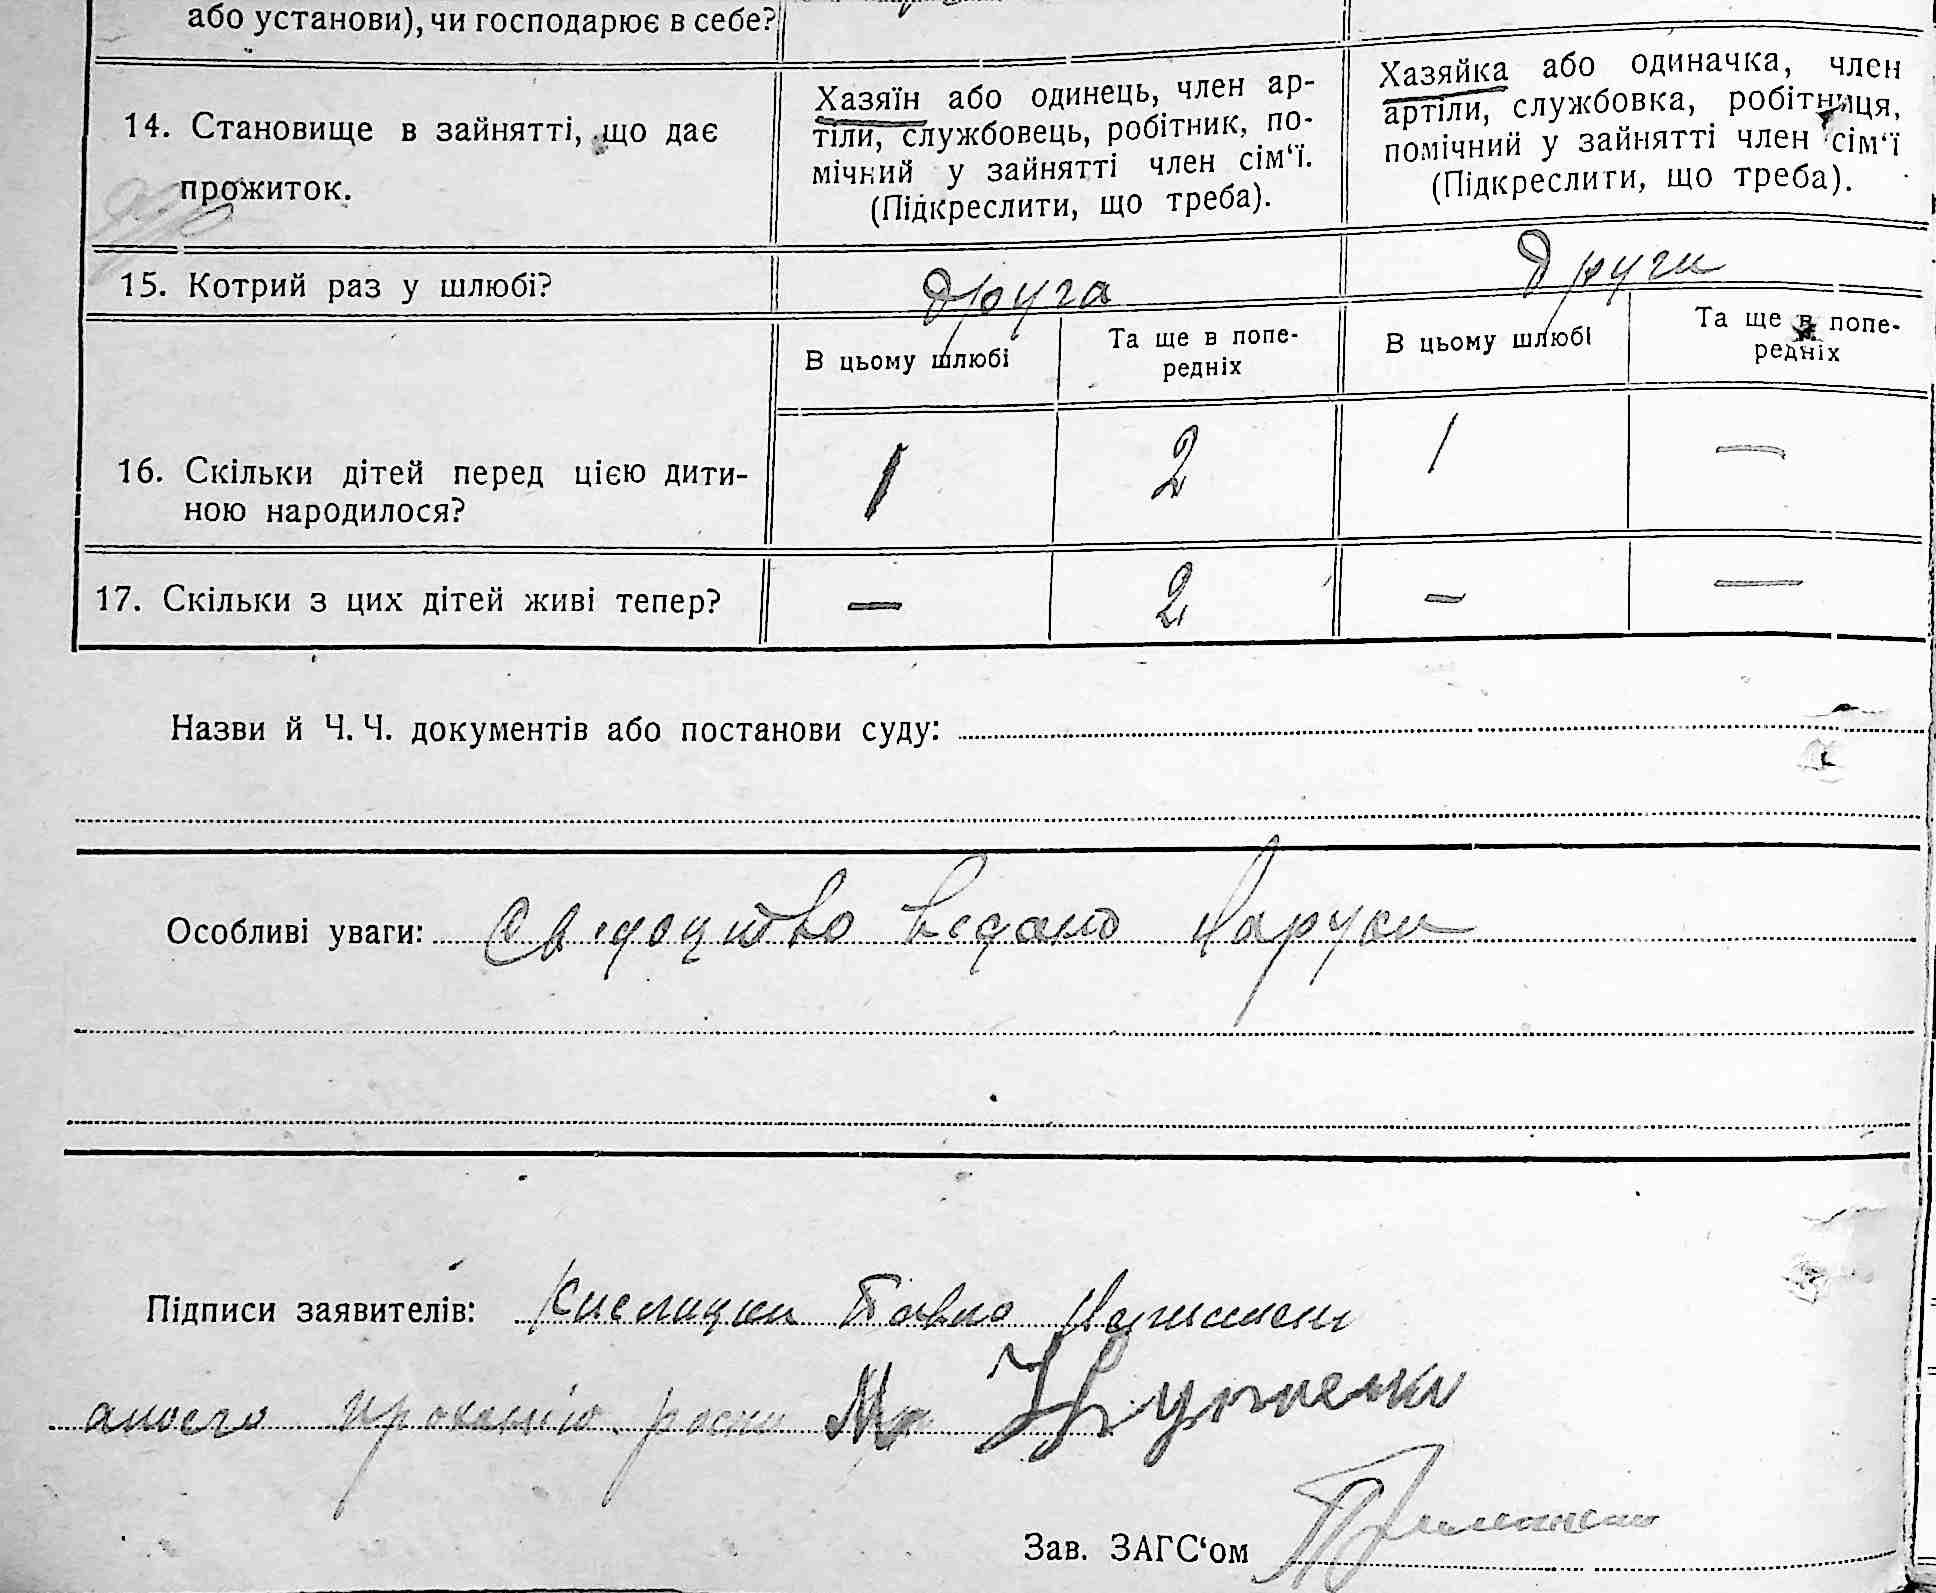 або установи), чи господарює в себе?
14. Становище в зайнятті, що дає
прожиток.
Хазяїн або одинець, член ар-
тіли, службовець, робітник, по-
мічний у зайнятті член сім‘ї.
(Підкреслити, що треба).
Хазяйка або одиначка, член
артіли, службовка, робітниця,
помічний у зайнятті член сім‘ї
(Підкреслити, що треба).
15. Котрий раз у шлюбі?
друга
други
В цьому шлюбі
Та ще в попе-
редніх
В цьому шлюбі
Та ще в попе-
редніх
16. Скільки дітей перед цією дити-
ною народилося?
1
2
1
—
17. Скільки з цих дітей живі тепер?
—
2
—
—
Назви й Ч. Ч. документів або постанови суду:
Особливі уваги: Свідоцтво видано на руки
Підписи заявителів: Павло
Зав. ЗАГС‘ом